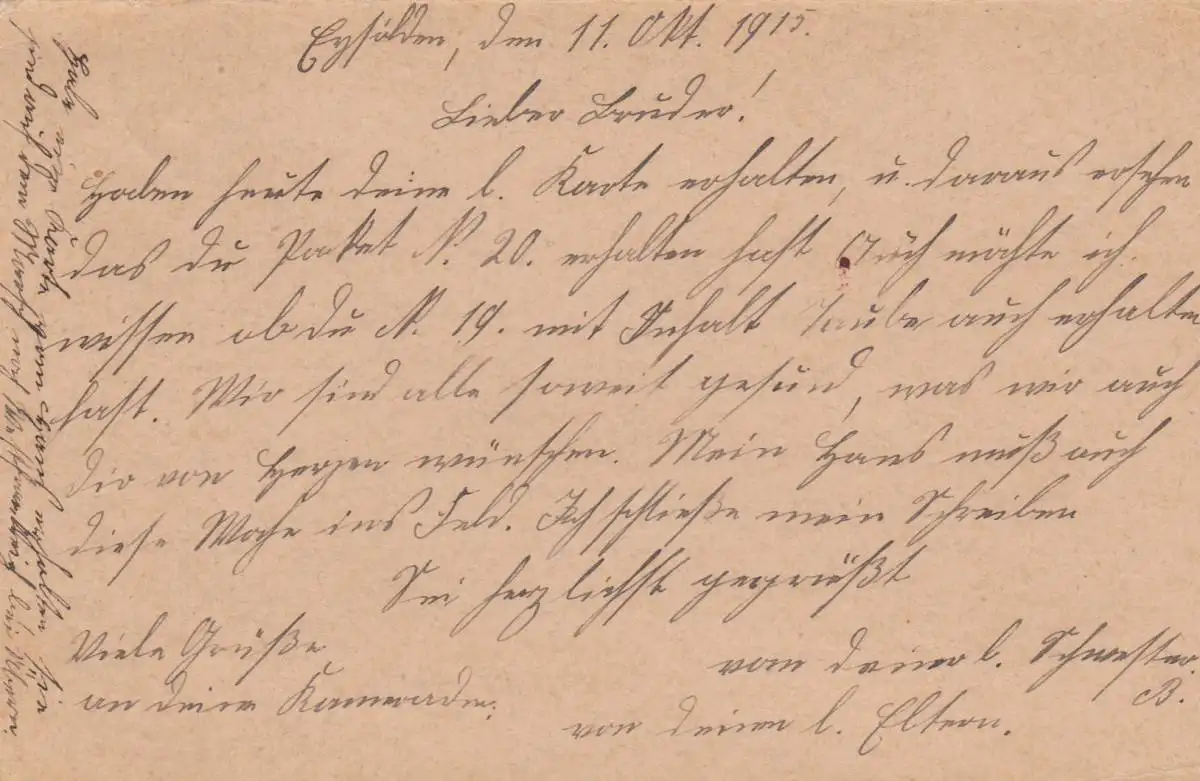 Eysölden, den 11. Okt. 1915.
Lieber Bruder!
Haben heute deine l. Karte erhalten, u. daraus ersehen
das du Paket N. 20. erhalten hast Auch möchte ich
wissen ob du N. 19. mit Inhalt Taube auch erhalten
hast. Wir sind alle soweit gesund, was wir auch
dir von Herzen wünschen. Mein Hans muß auch
diese Woche ins Feld. Ich schließe mein Schreiben
Sei herzlichst gegrüßt
Viele Grüße
an deine Kameraden.
von deiner l. Schwester.
B.
von deinen l. Eltern.
Karte dankend erhalten